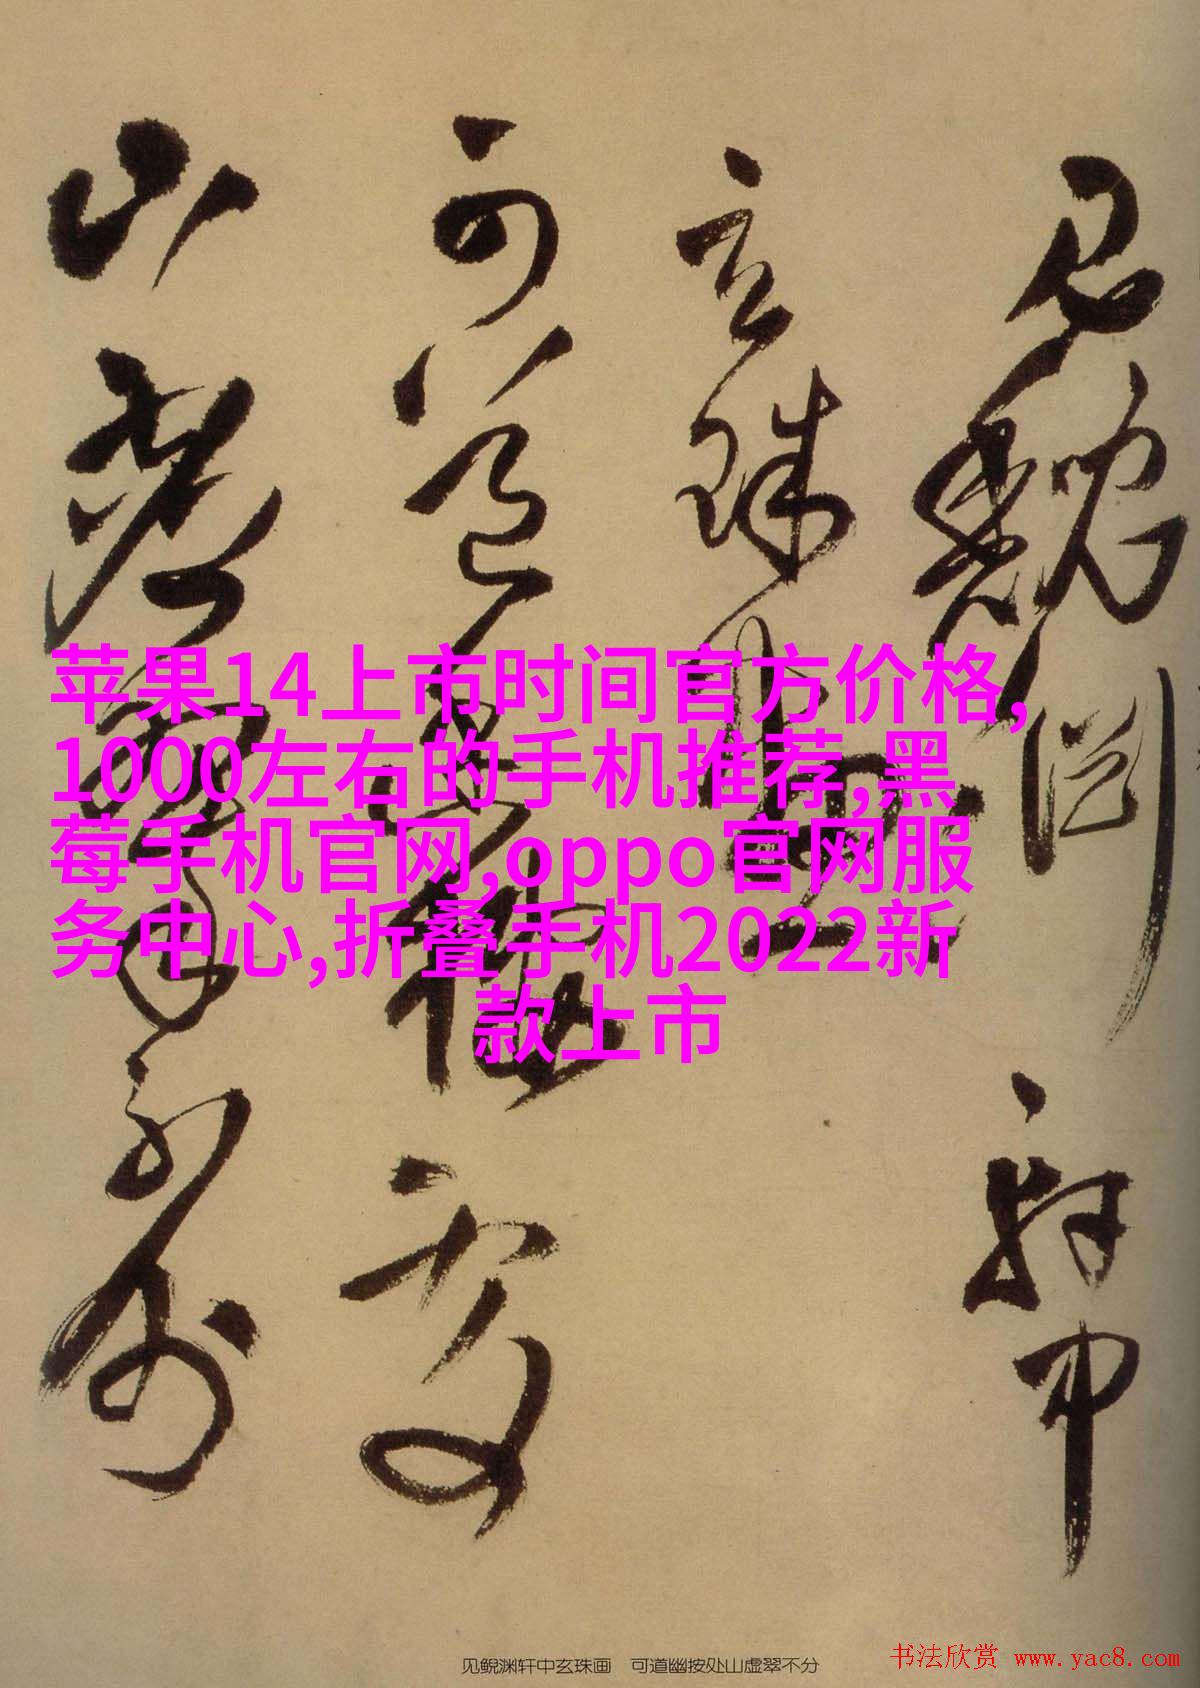 见鲵渊轩中
玄珠画
可道幽按处
山虚翠不分
苹果14上市时间官方价格,
1000左右的手机推荐,黑
莓手机官网,oppo官网服
务中心,折叠手机2022新
款上市
见鲵渊轩中玄珠画 可道幽按处山虚翠不分
书法欣赏 www.yac8.com